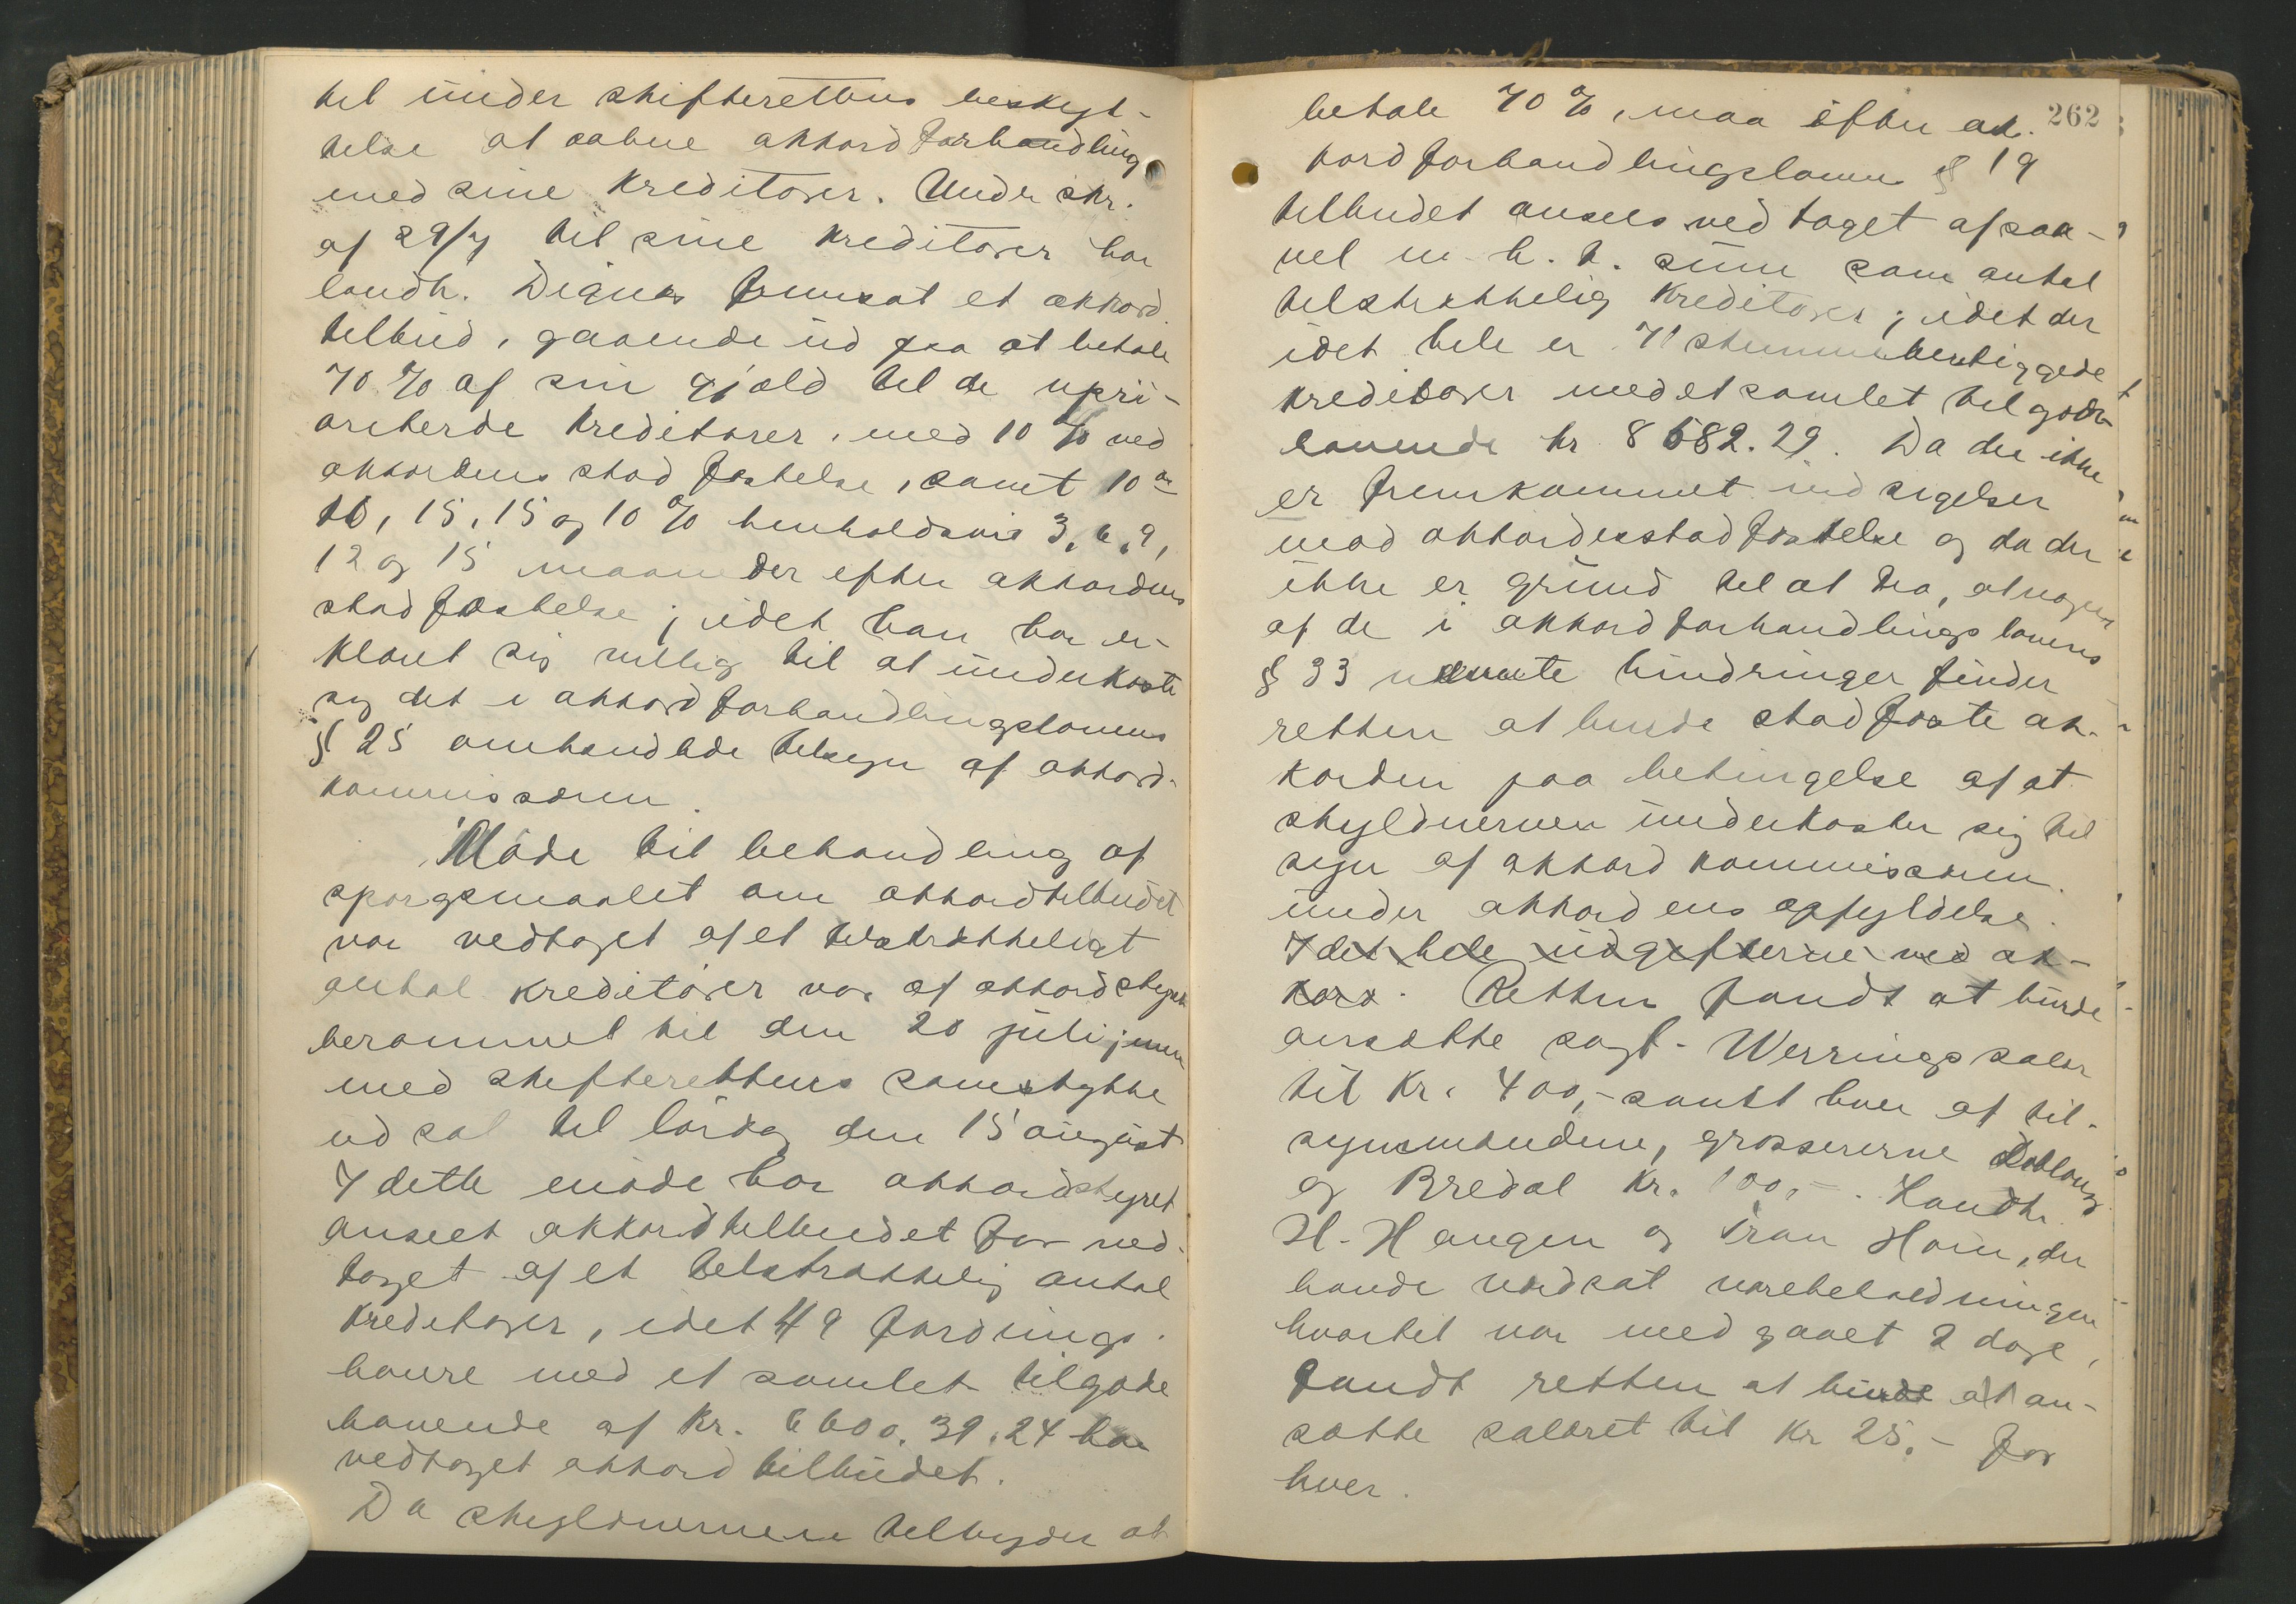 til under skifterettens beskyt-
telse at aabne akkordforhandling
med sine kreditorer. Under skr.
af 29/7 til sine kreditorer har
landh. Dignes fremsat et akkord
tilbud, gaaende ud paa at betale
70 % af sin gjæld til de upri-
oriterde kreditorer, med 10 % ved
akkordens stadfæstelse, samt 10
10, 15, 15 og 10 % henholdsvis 3, 6, 9,
12 og 15 maaneder efter akkordens
stadfæstelse; idet han har er-
klæret sig villig til at underkaste
sig det i akkordforhandlingslovens
§ 25 omhandlede tilsyn af akkord-
kommissæren.
Møde til behandling af
spørgsmaalet om akkordtilbudet
var vedtaget af et tilstrækkeligt
antal kreditorer var af akkordstyret
berammet til den 20 juli; men
med skifterettens samtykke
udsat til lørdag den 15 august
I dette møde har akkordstyret
anseet akkordtilbudet for ved-
taget af et tilstrækkelig antal
kreditorer, idet 49 fordrings-
havere med et samlet tilgode
havende af kr. 6600.39.24 har
vedtaget akkordtilbudet.
Da skyldneren tilbyder at
262
betale 70 %, maa efter ak-
kordforhandlingsloven § 19
tilbudet ansees vedtaget af saa-
vel m. h. t. sum som antal
tilstrækkelig kreditorer; idet der
i det hele er 71 stemmeberettiggede
kreditorer med et samlet tilgode-
havende kr 8682.29. Da der ikke
er fremkommet indsigelser
mod akkordens stadfæstelse og da der
ikke er grund til at tro, at nogen
af de i akkordforhandlingslovens
§ 33 nævnte hindringer finder
retten at burde stadfæste ak-
korden paa betingelse af at
skyldneren underkaster sig til
syn af akkordkommissæren
under akkordens opfyldelse.
I det hele udgifterne ved ak-
kord. Retten fandt at burde
ansætte sagf. Werrings salær
til kr. 400,- samt hver af til-
synsmændene, grossererne Dobloug
og Bredal kr. 100,-. Landh.
H. Haugen og Iran Hom, der
havde værdsat varebeholdningen
hvortil var medgaaet 2 dage,
fandt retten at burde at an-
sætte salæret til kr 25,- for
hver.